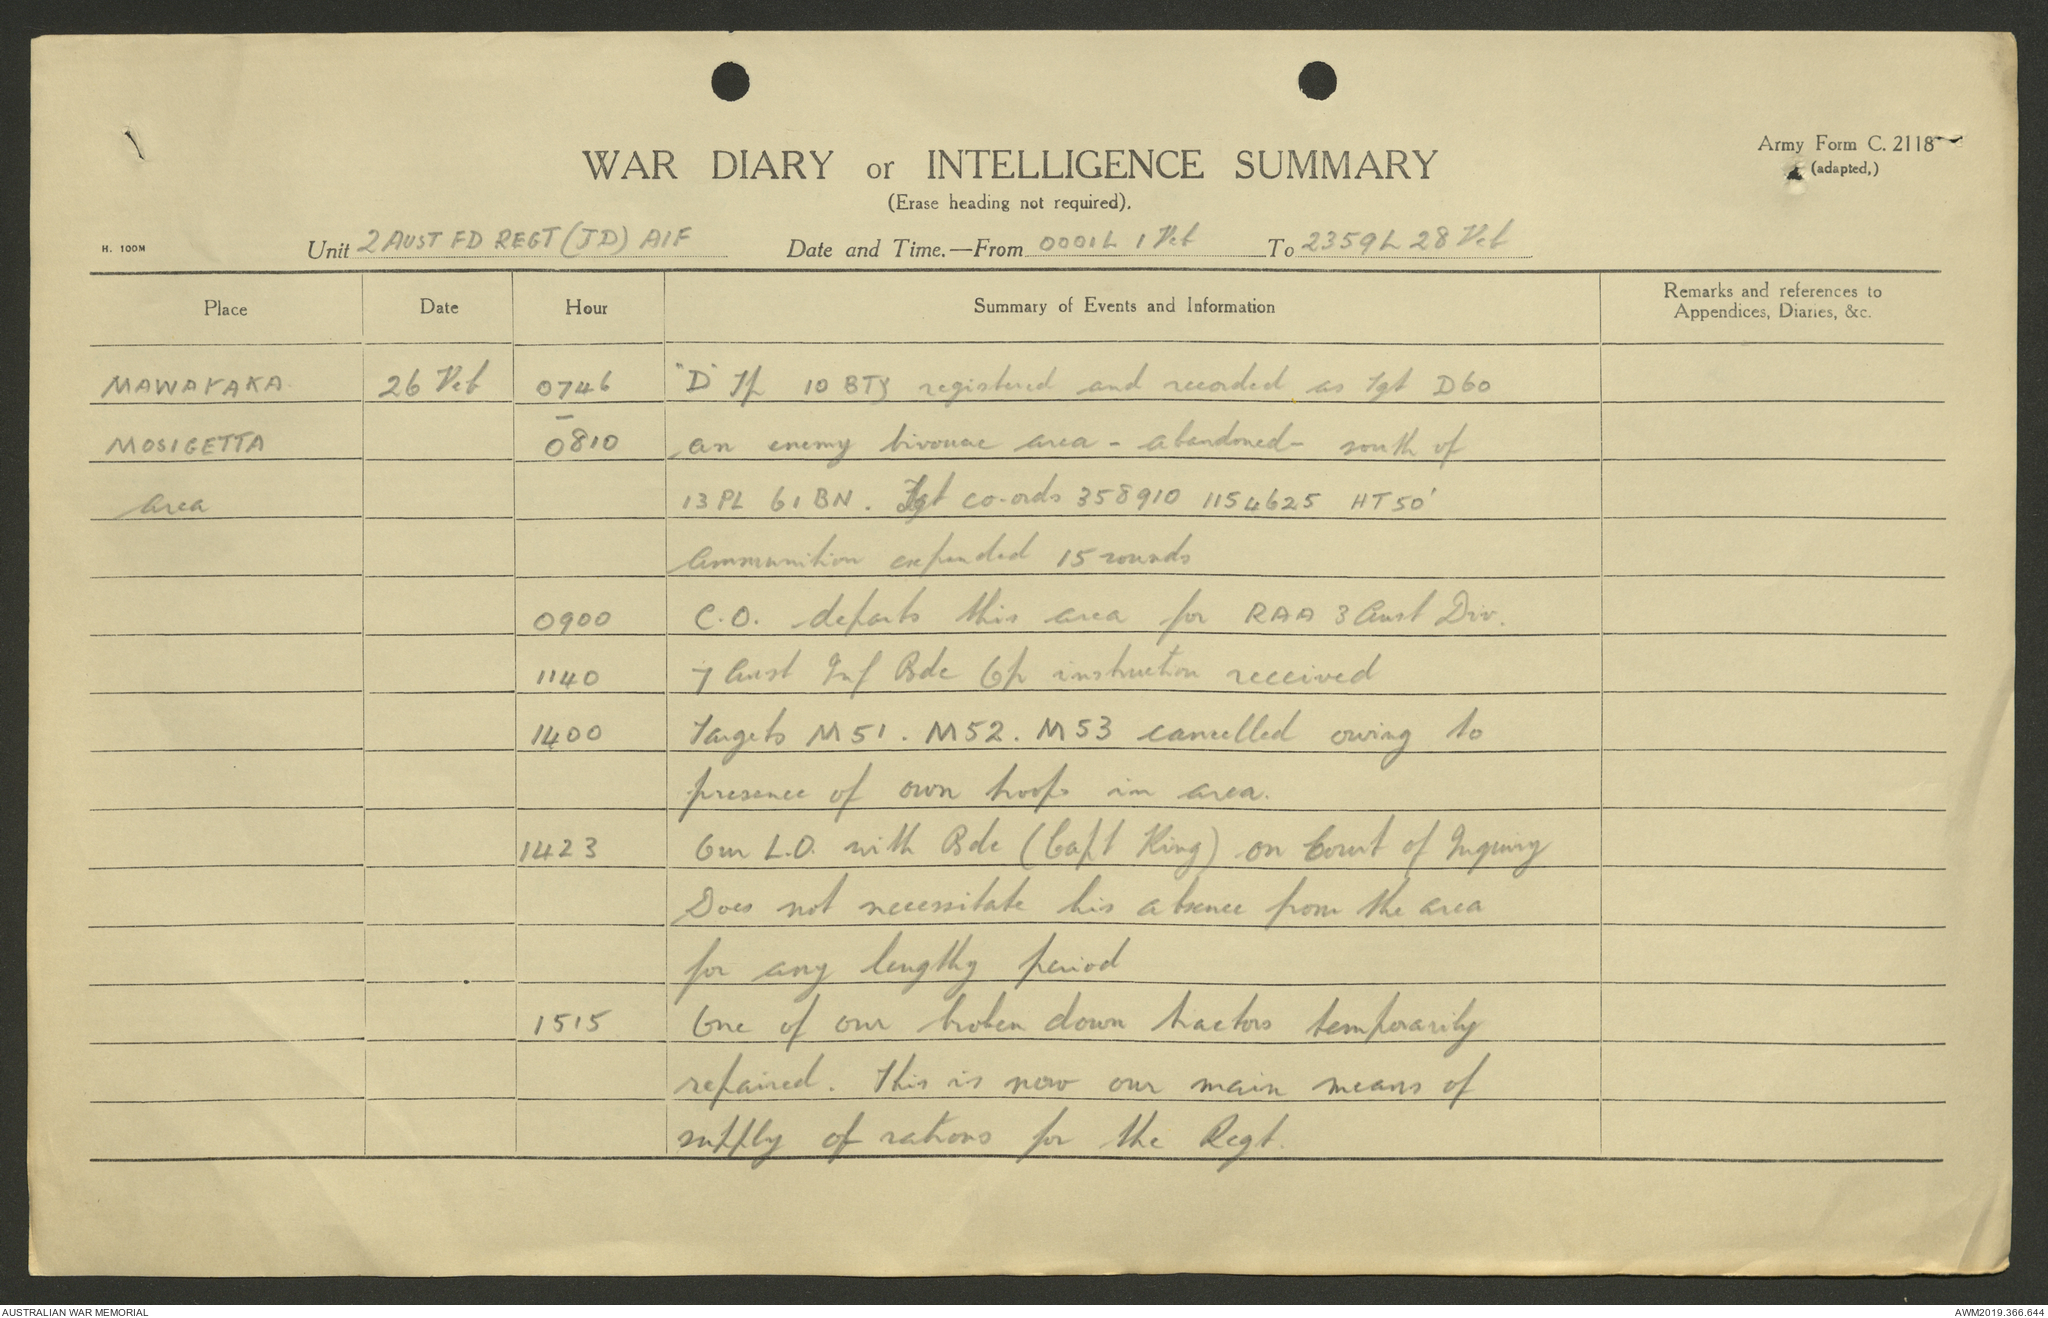 Army Form C. 2118
(adapted,)
WAR DIARY or INTELLIGENCE SUMMARY
(Erase heading not required).
H. 100M
Unit 2 AUST FD REGT (JD) AIF Date and Time.—From 0001L 1 Feb To 2359L 28 Feb
Place Date Hour Summary of Events and Information Remarks and references to
Appendices, Diaries, &c.
MAWARAKA 26 Feb 0746 "D" Tp 10 BTY registered and recorded as Tgt D60
MOSIGETTA – 0810 an enemy bivouac area - abandoned - south of
area 13 PL 61 BN. Tgt co-ords 358910 1154625 HT 50'
Ammunition expended 15 rounds
0900 C.O. departs this area for RAA 3 Aust Div.
1140 7 Aust Inf Bde Gp instruction received
1400 Targets M51. M52. M53 cancelled owing to
presence of own troops in area.
1423 Our L.O. with Bde (Capt King) on Court of Inquiry
Does not necessitate his absence from the area
for any lengthy period
1515 One of our broken down tractors temporarily
repaired. This is now our main means of
supply of rations for the Regt.
AUSTRALIAN WAR MEMORIAL
AWM2019.366.644